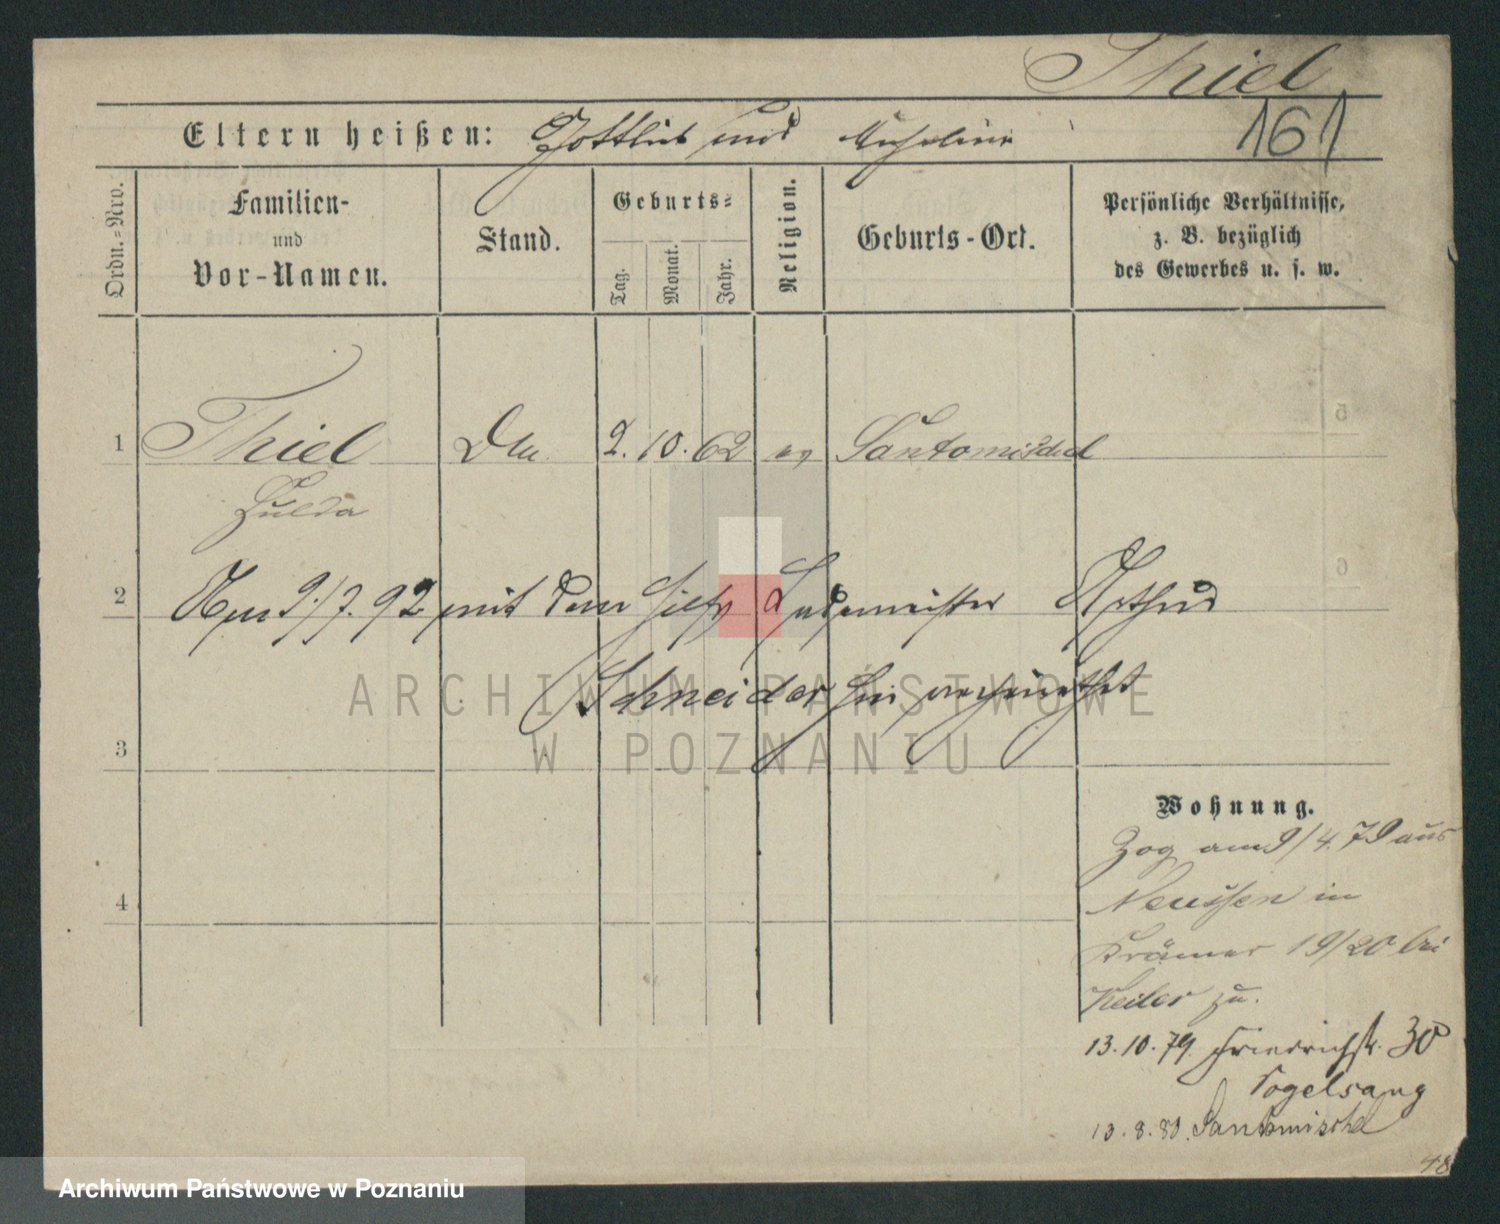 Thiel
161
Eltern heißen: Gottlieb und
Ordn.-Nro.
Familien-
und
Vor-Namen.
Stand.
Geburts-
Tag.
Monat.
Jahr.
Religion.
Geburts-Ort.
Persönliche Verhältnisse,
z. B. bezüglich
des Gewerbes u. s. w.
1 Thiel 2. 10. 62 ev Santomischel
Hulda
2 Am 9/7. 92 mit dem Hilfs Lademeister Arthur
Schneider hier verheirathet
3
4
Wohnung.
Zog am 9/4. 79 aus
in
Krämer 19/20 bei
Keiler zu.
13. 10. 79. Friedrichstr. 30
Vogelsang
13. 8. 80. Santomischel
48
ARCHIWUM PAŃSTWOWE
W POZNANIU
Archiwum Państwowe w Poznaniu